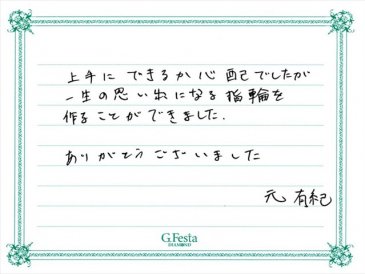 上手にできるか心配でしたが
一生の思い出になる指輪を
作ることができました.
ありがとうございました
元 有紀
G.Festa
DIAMOND